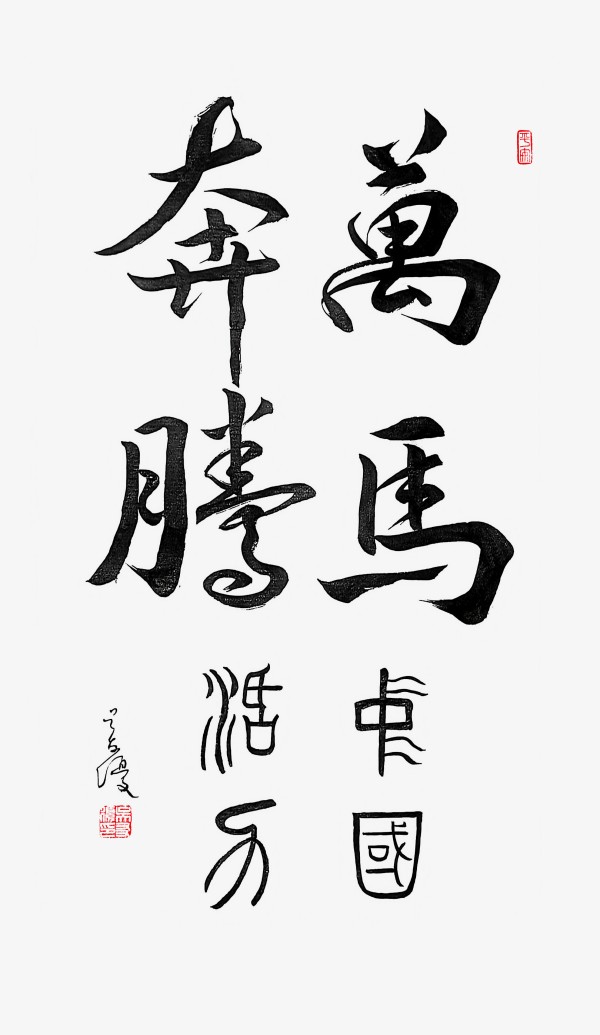 萬馬
奔騰
中國
活力